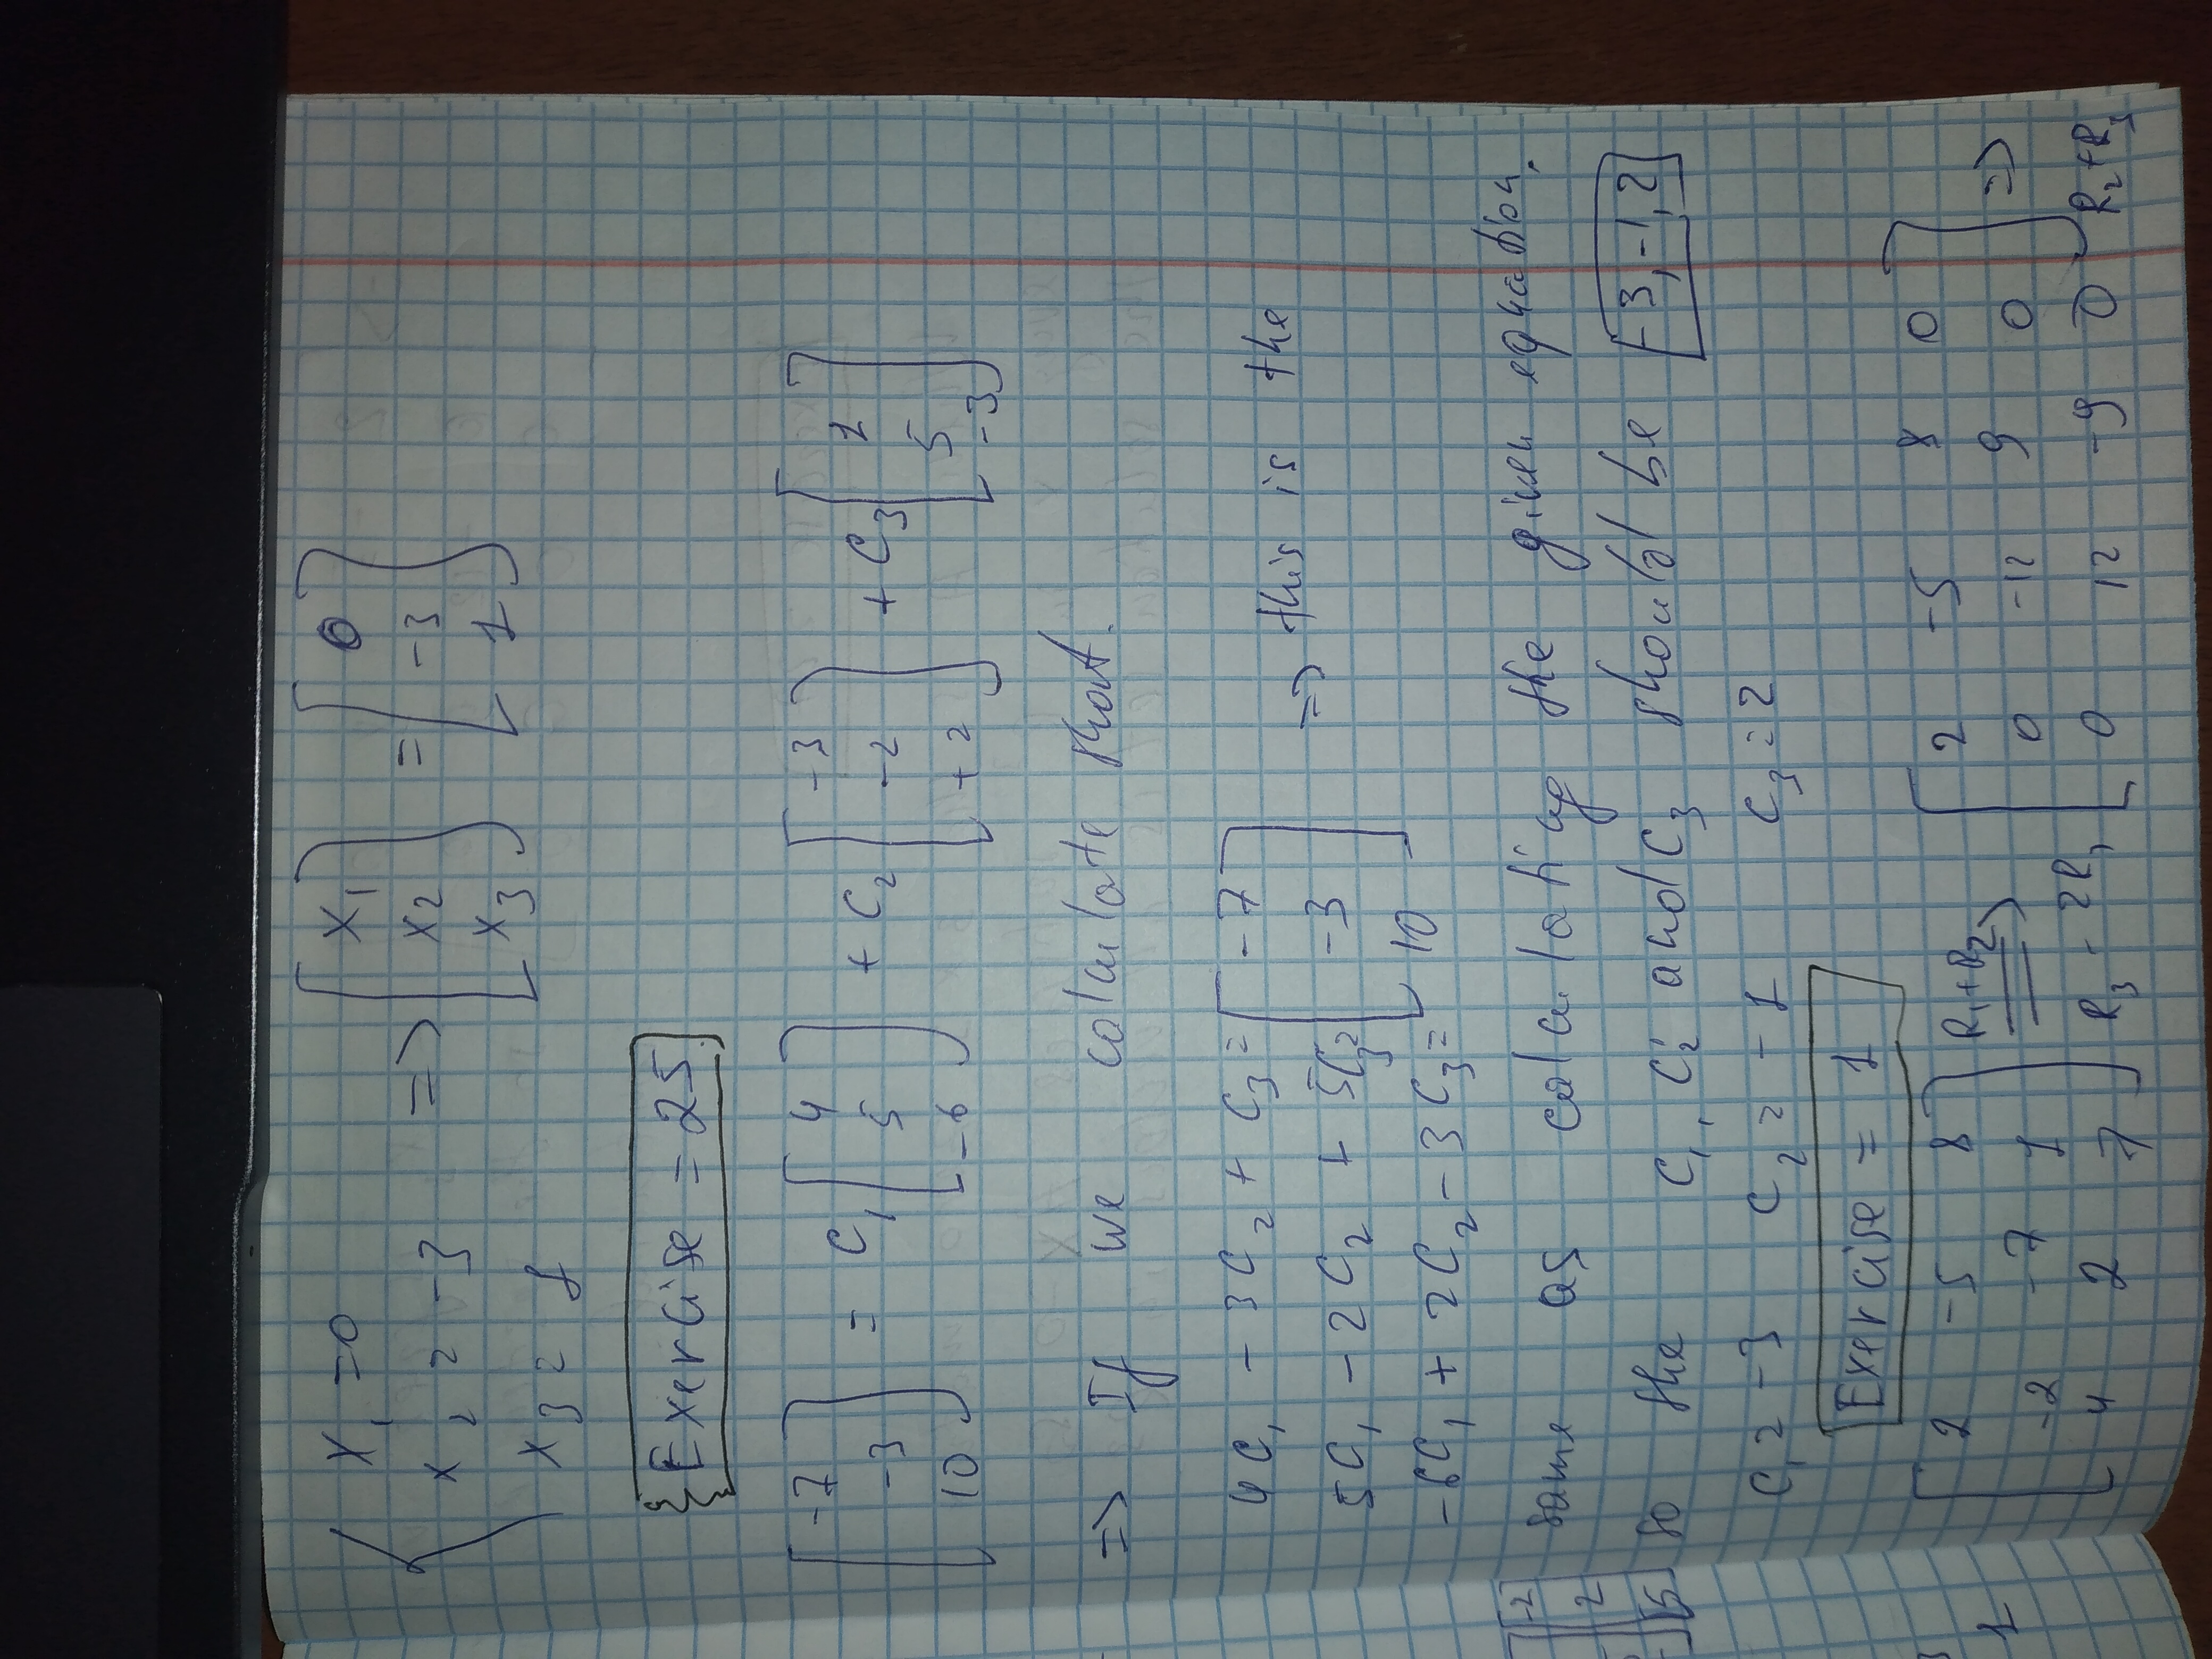 x₁ = 0
x₂ = -3
x₃ = 1
=> [x₁ x₂ x₃] = [0 -3 1]
Exercise = 25
[-7 -3 10] = C₁ [4 5 -6] + C₂ [-3 -2 +2] + C₃ [1 5 -3]
=> If we calculate that.
4C₁ - 3C₂ + C₃ = -7
5C₁ - 2C₂ + 5C₃ = -3 => this is the
-6C₁ + 2C₂ - 3C₃ = 10
same as calculating the given equation.
so the C₁, C₂ and C₃ should be [-3, -1, 2]
C₁ = -3 C₂ = -1 C₃ = 2
Exercise = 1
[2 -5 8] R₁+R₂ => [2 -5 8 0]
[-2 -7 1] [0 -12 9 0] =>
[4 2 7] R₃ - 2R₁ [0 12 -9 0] R₂+R₃
-2
2
1